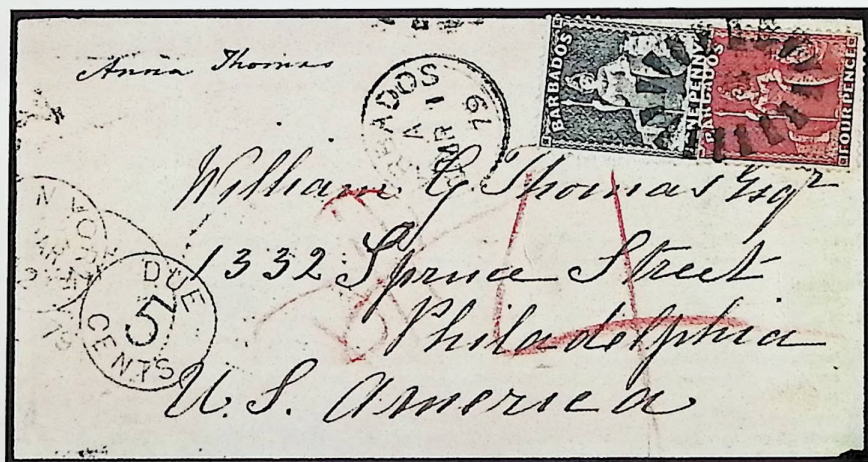 Anna Thomas
BARBADOS
ONE PENNY
BARBADOS
FOUR PENCE
BARBADOS
A
MR 1
79
William G Thomas Esqr
1332 Spruce Street
Philadelphia
U.S. America
4
DUE
5
CENTS
N YORK